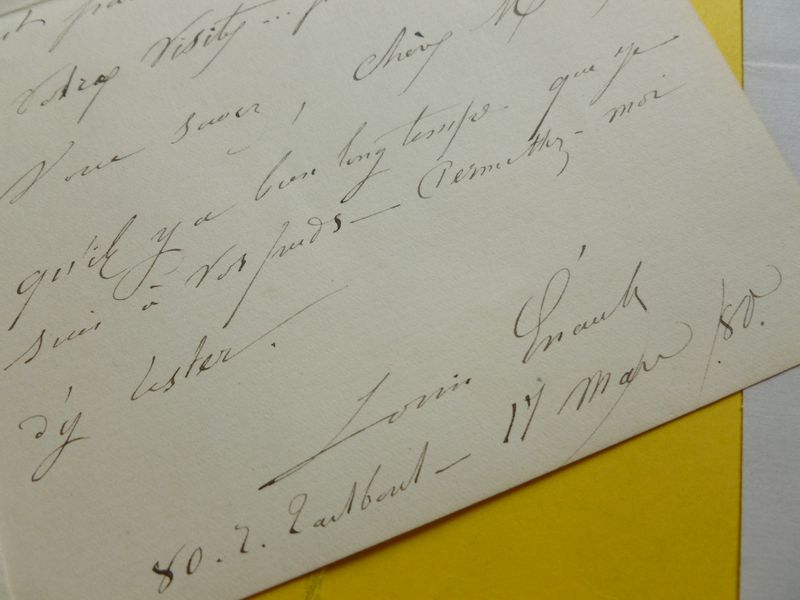 Votre Visite...
Vous savez, Chère M
qu'il y a bien longtemps que je
suis à vos pieds — Permettez-moi
d'y rester.
Louis Énault
80. r. Taitbout — 17 Mars /80.